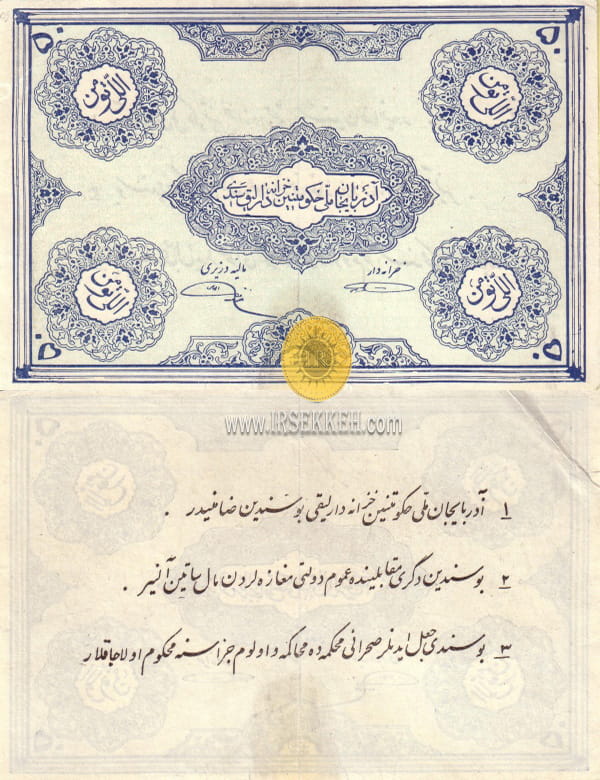 ۵۰ ۵۰
اللی تومن
اللی تومن
آذربایجان ملی حکومتینین خزانه دارلیق سندی
مالیه وزیری
خزانه دار
اللی تومن
اللی تومن
۵۰ ۵۰
www.IRSEKKEH.com
۱ آذربایجان ملی حکومتینین خزانه دارلیقی بو سندین ضامنیدر .
۲ بو سندین دگری مقابلینده عموم دولتی مغازه لردن مال ساتین آلنیر .
۳ بو سندی جعل ایدنلر صحرائی محکمه ده محاکمه و اولوم جزاسنه محکوم اولاجاقلار